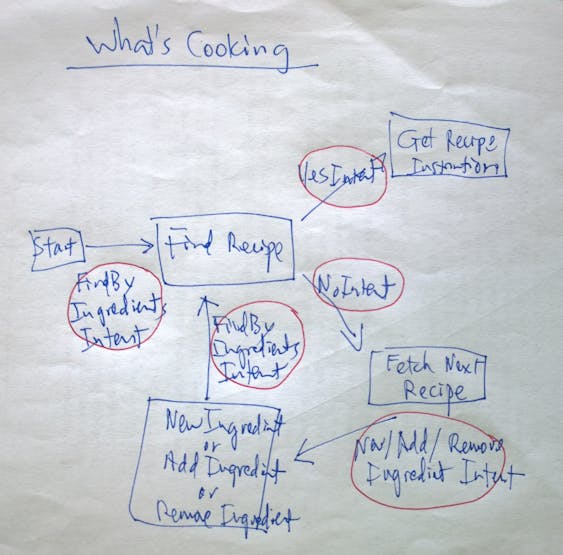 What's Cooking
Get Recipe
Instruction
YesIntent
Start
Find Recipe
FindBy
Ingredients
Intent
NoIntent
FindBy
Ingredients
Intent
Fetch Next
Recipe
New Ingredient
or
Add Ingredient
or
Remove Ingredient
New/Add/Remove
Ingredient Intent